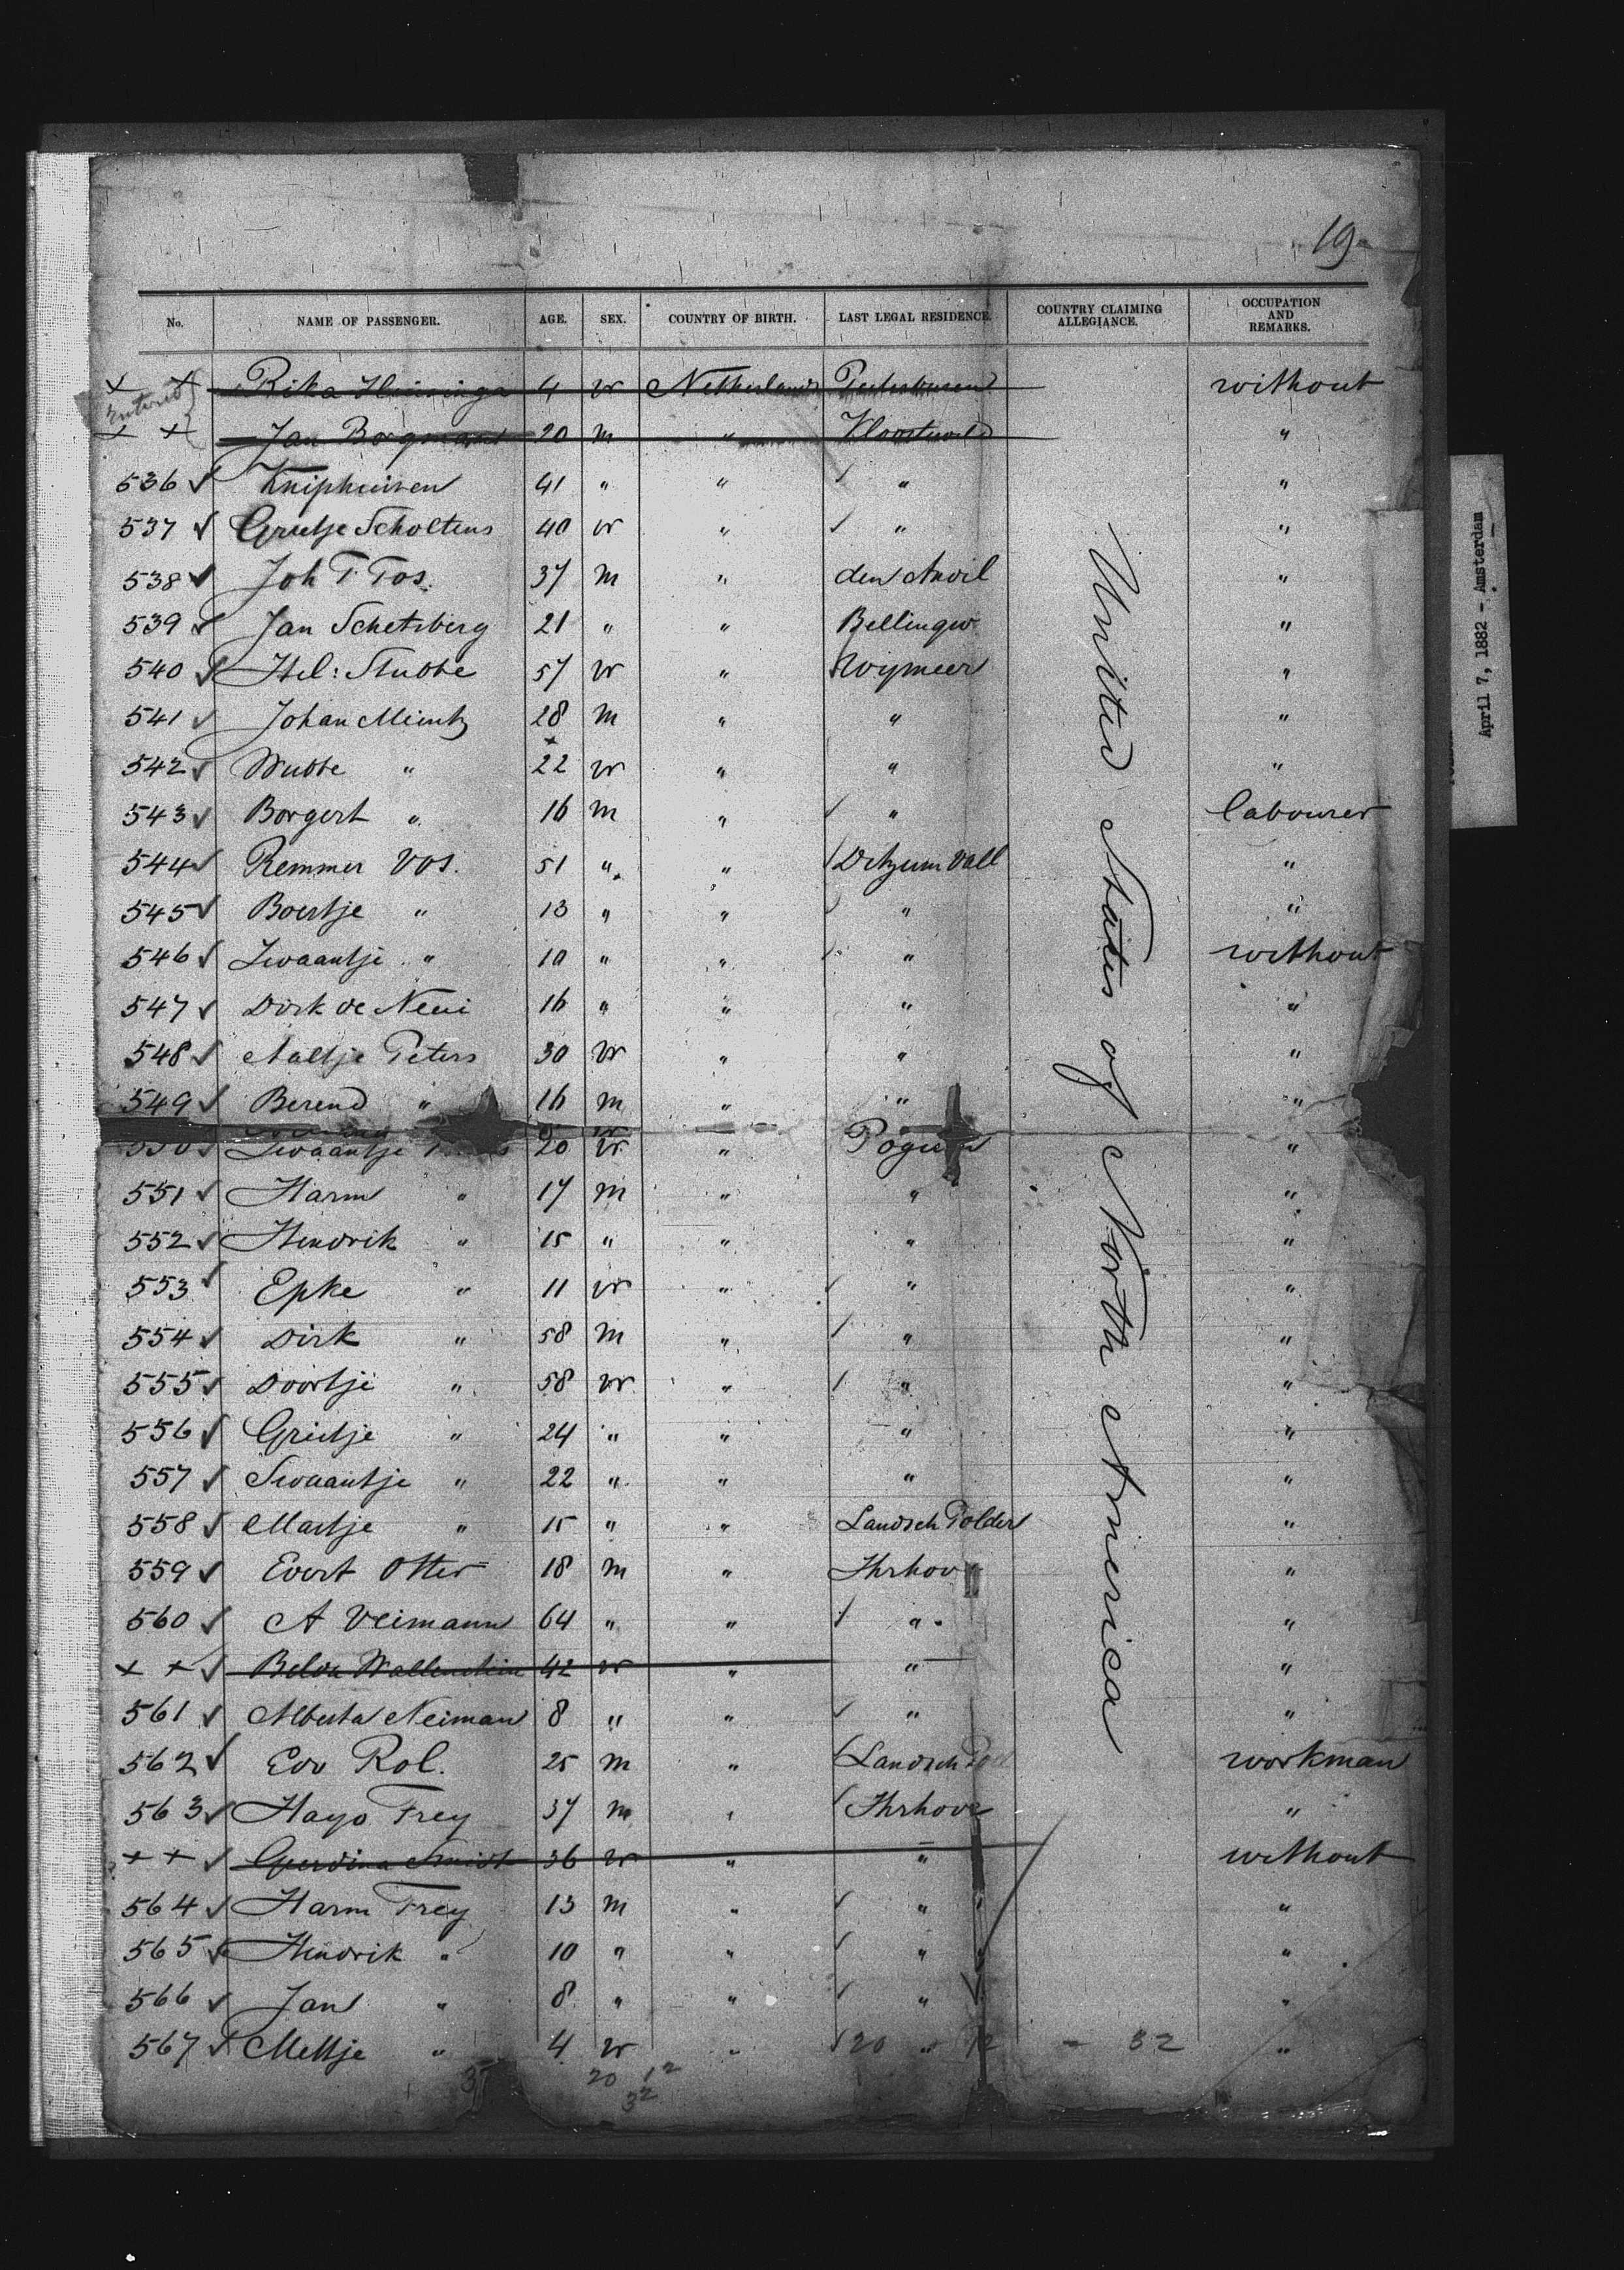 19
No. NAME OF PASSENGER. AGE. SEX. COUNTRY OF BIRTH. LAST LEGAL RESIDENCE. COUNTRY CLAIMING ALLEGIANCE. OCCUPATION AND REMARKS.
+ + Rika 4 w Netherlands without
+ + Jan Borgman 20 m " "
536 ✓ Kniphuisen 41 " " " "
537 ✓ Grietje Scholtens 40 w " " "
538 ✓ Joh T. Tos. 37 m " den Andil "
539 ✓ Jan Schetsberg 21 " " Bellingw "
540 ✓ Hel: Stubbe 57 w " Wymeer "
541 ✓ Johan Mintz 28 m " " "
542 ✓ Wubbe " 22 w " " "
543 ✓ Borgert " 16 m " " labourer
544 ✓ Remmer Vos. 51 " " Ditzum Vall "
545 ✓ Boertje " 13 " " " "
546 ✓ Zwaantje " 10 " " " without
547 ✓ Dirk de 16 " " " "
548 ✓ Aaltje Peters 30 w " " "
549 ✓ Berend " 16 m " " "
550 ✓ Zwaantje 20 w " "
551 ✓ Harm " 17 m " " "
552 ✓ Hendrik " 15 " " " "
553 ✓ Epke " 11 w " " "
554 ✓ Dirk " 58 m " " "
555 ✓ Doortje " 58 w " " "
556 ✓ Grietje " 24 " " " "
557 ✓ Swaantje " 22 " " " "
558 ✓ Martje " 15 " " Landsch Polder "
559 ✓ Evert Otter 18 m " Ihrhov "
560 ✓ A Veimann 64 " " " "
+ + ✓ 42 w " " "
561 ✓ Alberta Neiman 8 " " " "
562 ✓ Edv Rol. 25 m " Landsch workman
563 ✓ Hayo Frey 37 m " Ihrhove "
+ + ✓ Gerdina Smidt 36 w " " without
564 ✓ Harm Frey 13 m " " "
565 ✓ Hendrik " 10 " " " "
566 ✓ Jan " 8 " " " "
567 ✓ Meltje " 4 w " 20 " 12 - 32 "
United States of North America
20 12
32
April 7, 1882 - Amsterdam